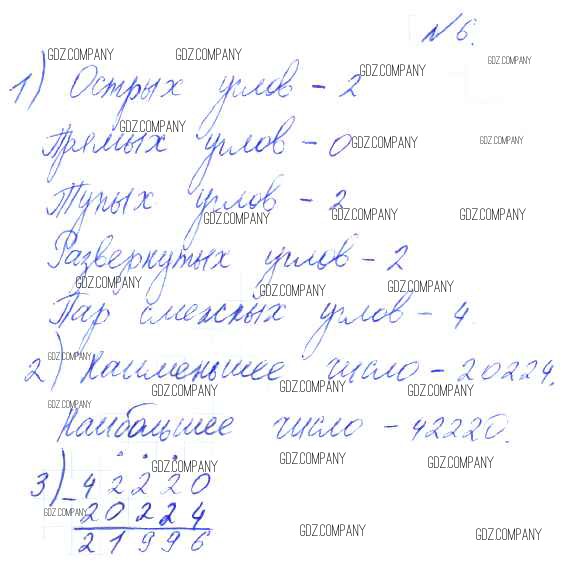 № 6.
GDZ.COMPANY GDZ.COMPANY GDZ.COMPANY
GDZ.COMPANY
1) Острых углов - 2
GDZ.COMPANY
Прямых углов - 0
GDZ.COMPANY GDZ.COMPANY
Тупых углов - 2
GDZ.COMPANY GDZ.COMPANY GDZ.COMPANY
Развернутых углов - 2
GDZ.COMPANY GDZ.COMPANY GDZ.COMPANY
Пар смежных углов - 4
GDZ.COMPANY
2) Наименьшее число - 20224.
GDZ.COMPANY GDZ.COMPANY GDZ.COMPANY
GDZ.COMPANY
Наибольшее число - 42220.
GDZ.COMPANY GDZ.COMPANY GDZ.COMPANY
3) - 42220
GDZ.COMPANY
20224
GDZ.COMPANY GDZ.COMPANY
21996